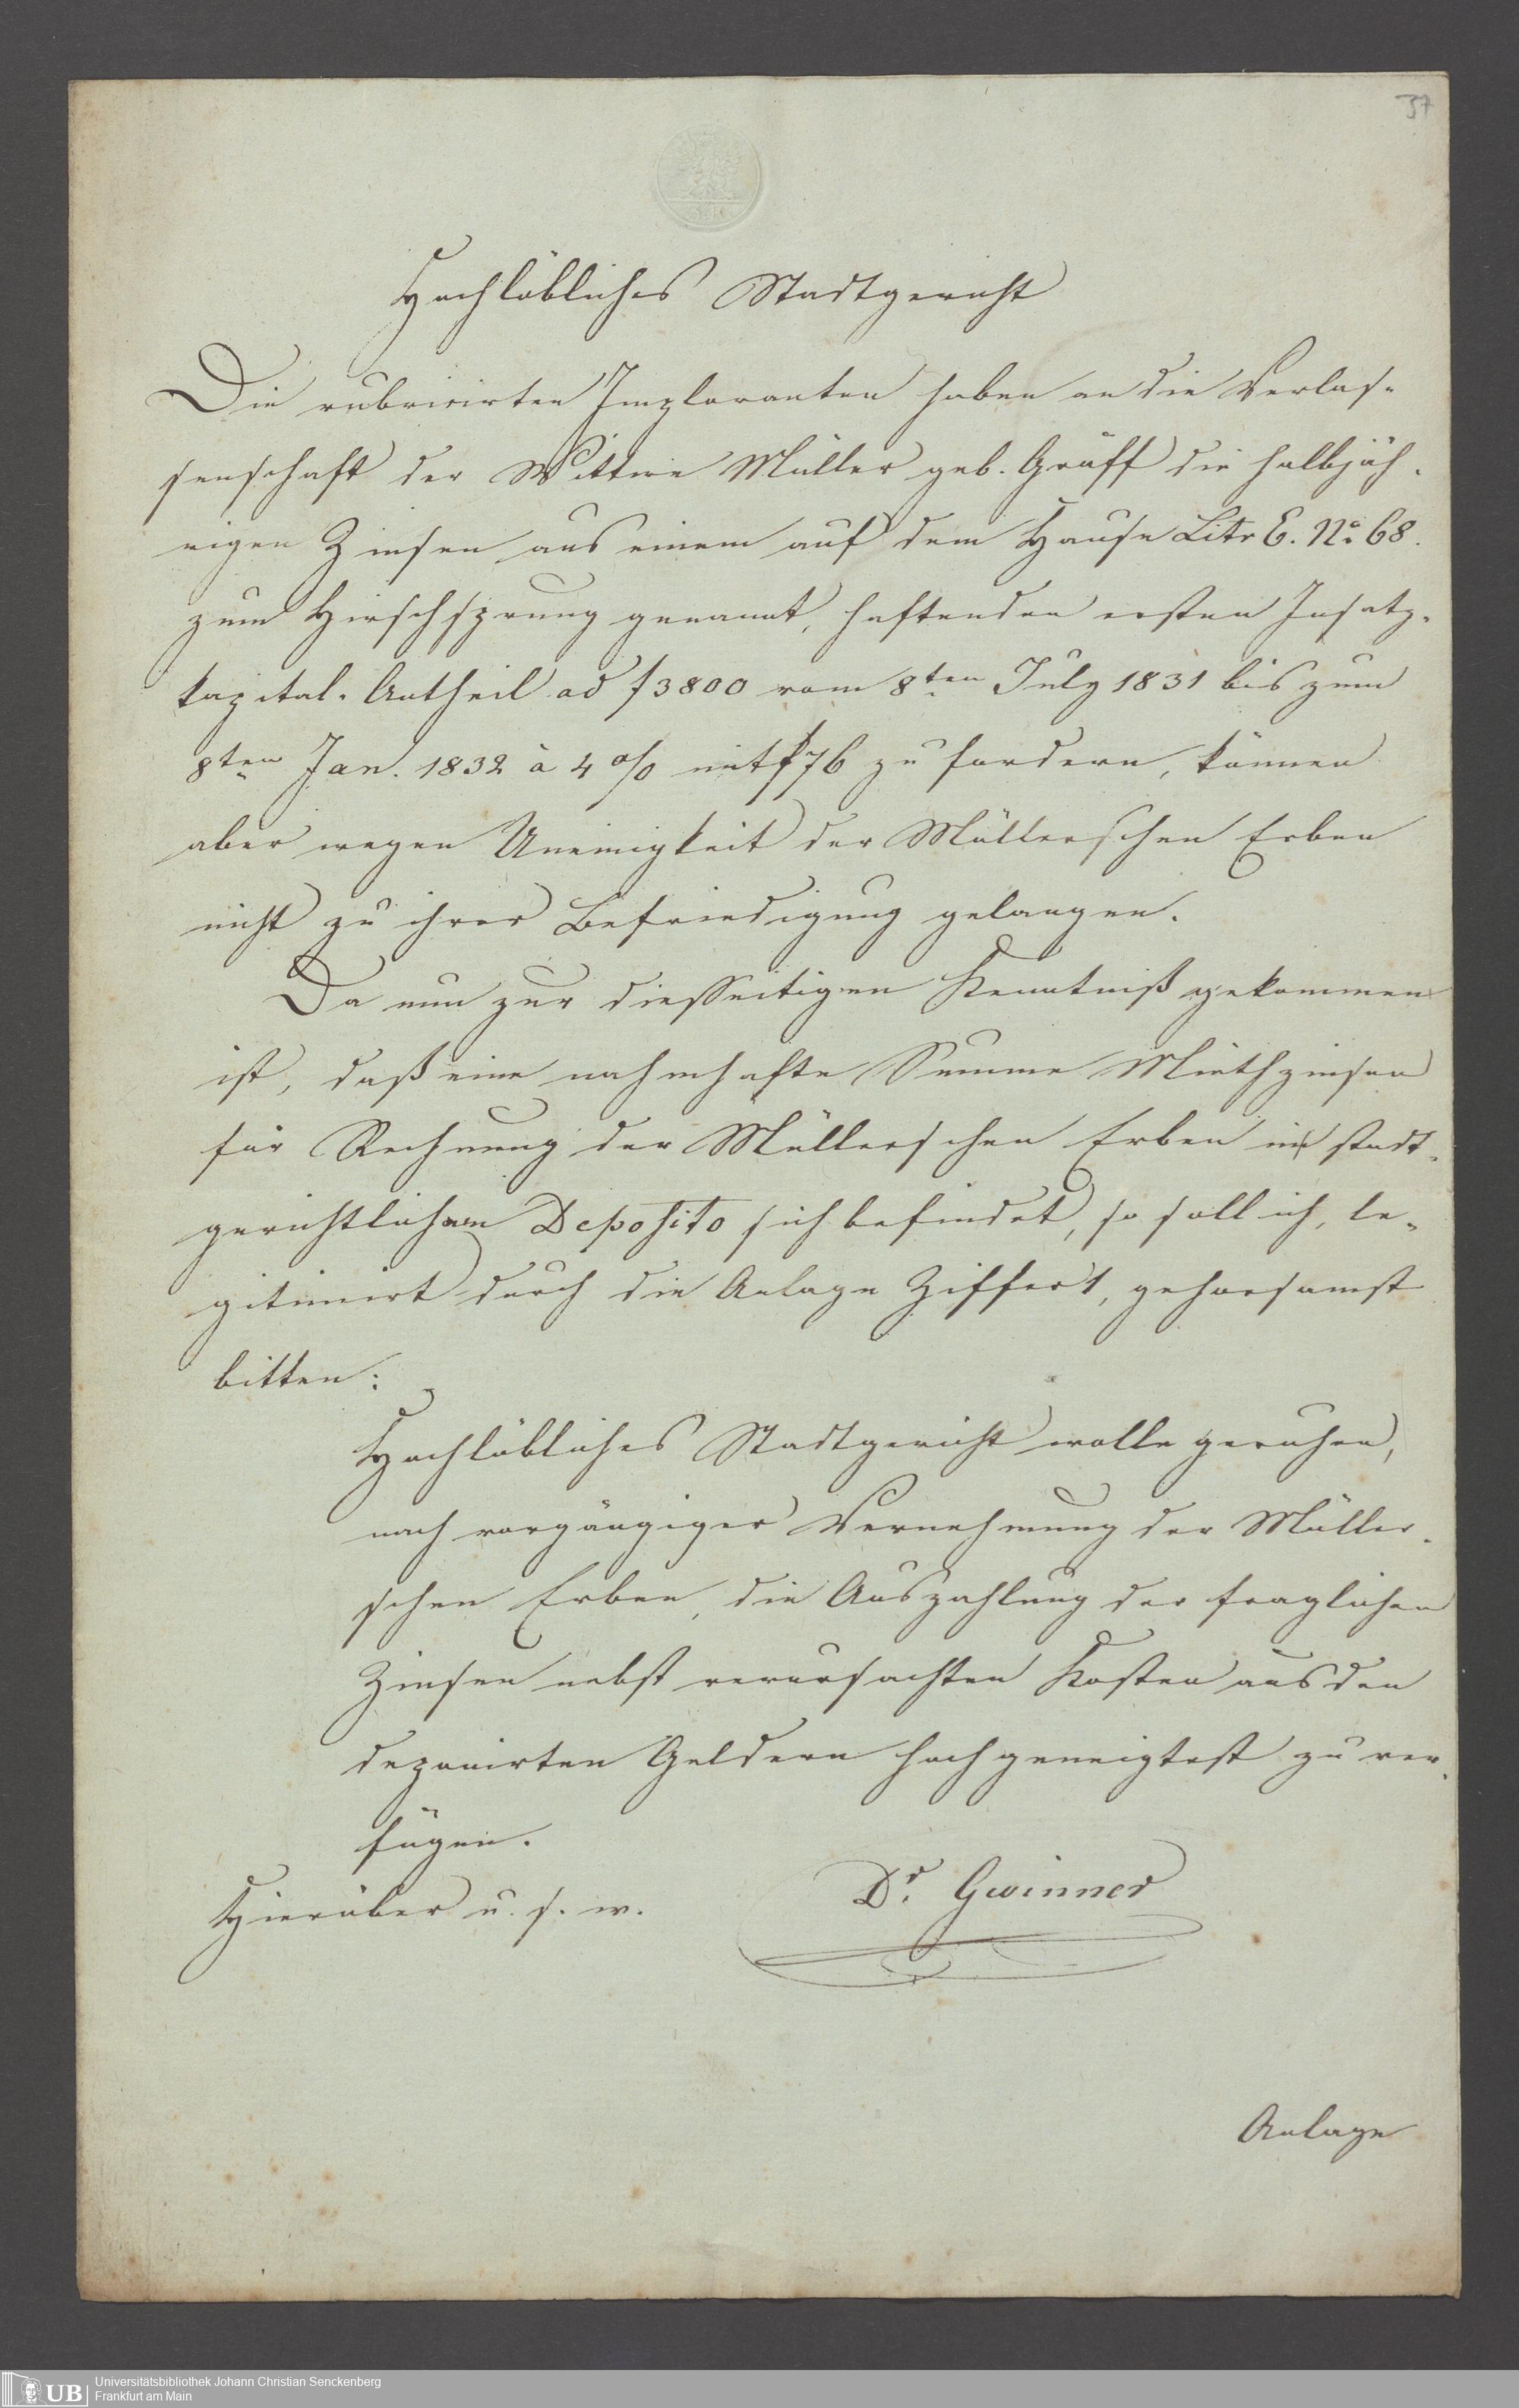 37
Hochlöbliches Stadtgericht
Die rubricirten Imploranten haben an die Verlas-
senschaft der Wittwe Müller geb. Gräff die halbjäh-
rigen Zinsen aus einem auf dem Hause Litr E. No 68.
zum Hirschsprung genannt, haftenden ersten Insatz-
kapital-Antheil ad f 3800 vom 8ten July 1831 bis zum
8ten Jan. 1832 à 4 % mit f 76 zu fordern, können
aber wegen Uneinigkeit der Müllerschen Erben
nicht zu ihrer Befriedigung gelangen.
Da nun zur diesseitigen Kenntniß gekommen
ist, daß eine nahmhafte Summe Miethzinsen
für Rechnung der Müllerschen Erben im stadt-
gerichtlichem Deposito sich befindet, so soll ich, le-
gitimirt durch die Anlage Ziffer 1, gehorsamst
bitten:
Hochlöbliches Stadtgericht wolle geruhen,
nach vorgängiger Vernehmung der Müller-
schen Erben, die Auszahlung der fraglichen
Zinsen nebst verursachten Kosten aus den
deponirten Geldern hochgeneigtest zu ver-
fügen.
Hierüber u. s. w.
Dr. Gwinner
Anlage
UB
Universitätsbibliothek Johann Christian Senckenberg
Frankfurt am Main